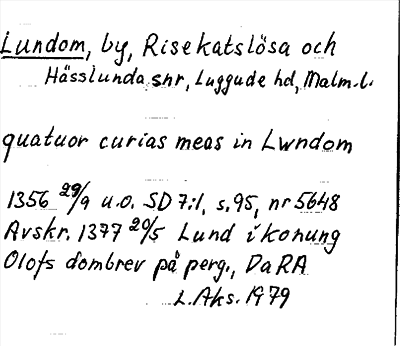 Lundom, by, Risekatslösa och
Hässlunda snr, Luggude hd, Malm.l.
quatuor curias meas in Lwndom
1356 29/9 u.o. SD 7:1, s. 95, nr 5648
Avskr. 1377 20/5 Lund i konung
Olofs dombrev på perg., DaRA
L. Aks. 1979